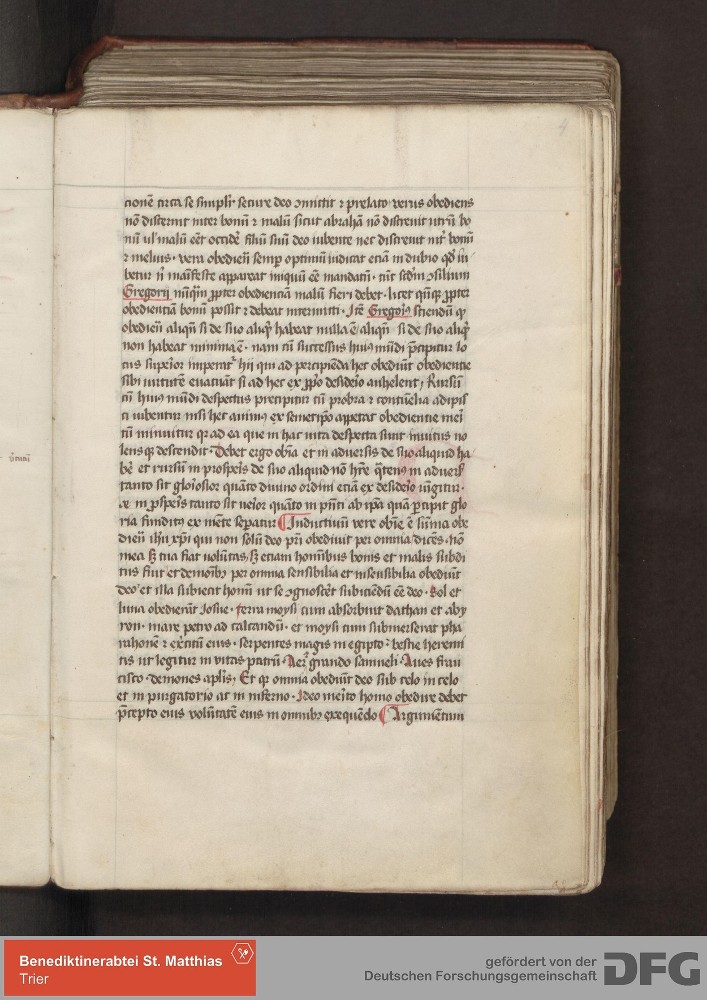 4
cionē circa se simplr̄ secure deo ɔmittit ⁊ prelato verus obediens
nō discernit inter bonū ⁊ malū sicut abrahā nō discrevit utrū bo
nū ul' malū eēt occidē filiū suū deo iubente nec discrevit int̄ bonū
⁊ melius · vera obediē semp optimū iudicat etiā in dubio qd' iu
betur nī manifeste appareat iniquū eē mandatū · tūc scdm ɔsilium
Gregorij nūqm̄ ꝓpter obedienciā malū fieri debet · licet qn̄qꝫ ꝓpter
obedienciā bonū possit ⁊ debeat intermitti · Itē Gregoꝰ sciendū qꝫ
obediē aliqn̄ si de suo aliqd' habeat nulla ē aliqn̄ si de suo aliqd'
non habeat minima ē · nam cū successus huiꝰ mūdi p̄cipitur lo
cus supeīor imperat' hii qui ad percipiēda hec obediūt obediencie
sibi virtutē evacuāt si ad hec ex ꝓpo desideīo anhelent · Rursū
cū huiꝰ mūdi despectus precipitur cū probra ⁊ contūelia adipis
ci iubentur nisi hec animꝰ ex semetipo appetat obediencie meī
tū minuitur qr ad ea que in hac vita despecta sunt invitus no
lensqꝫ descendit · Debet ergo obīa et in adversis de suo aliquid ha
bē et rursū in prosperis de suo aliquid nō hr̄e qtenꝰ in adversꝭ
tanto sit gloīosior quāto divino ordini etiā ex desideīo iūgitur ·
⁊ in ꝓsperis tanto sit veīor quāto in pn̄ti ab ip̄a quā p̄cipit glo
ria funditꝰ ex mēte sepatur Inductivū vere obīe ē summa obe
diē ihū xp̄i qui non solū deo pr̄i obedivit per omnia dicēs · nō
mea sꝫ tua fiat volūtas / sꝫ etiam hominībus bonis et malis subdi
tus fuit et demonibꝫ per omnia sensibilia et insensibilia obediūt
deo et illa subiecit homī ut se ɔgnoscēt subiciendū eē deo · Sol et
luna obedierāt Josue · terra moysi cum absorbuit dathan et aby
ron · mare petro ad calcandū · et moysi cum submerserat pha
rahonē ⁊ exercitū eius · serpentes magis in egipto · bestie heremi
tis ut legitur in vitas patrū · Aer ⁊ grando samueli · Aves fran
cisco · demones aplis · Et qr omnia obediūt deo sub celo in celo
et in purgatorio ac in inferno · Ideo merīto homo obedire debet
p̄cepto eius volūtatē eius in omnibꝫ exequēdo Argumentum
Benediktinerabtei St. Matthias
Trier
gefördert von der
Deutschen Forschungsgemeinschaft
DFG